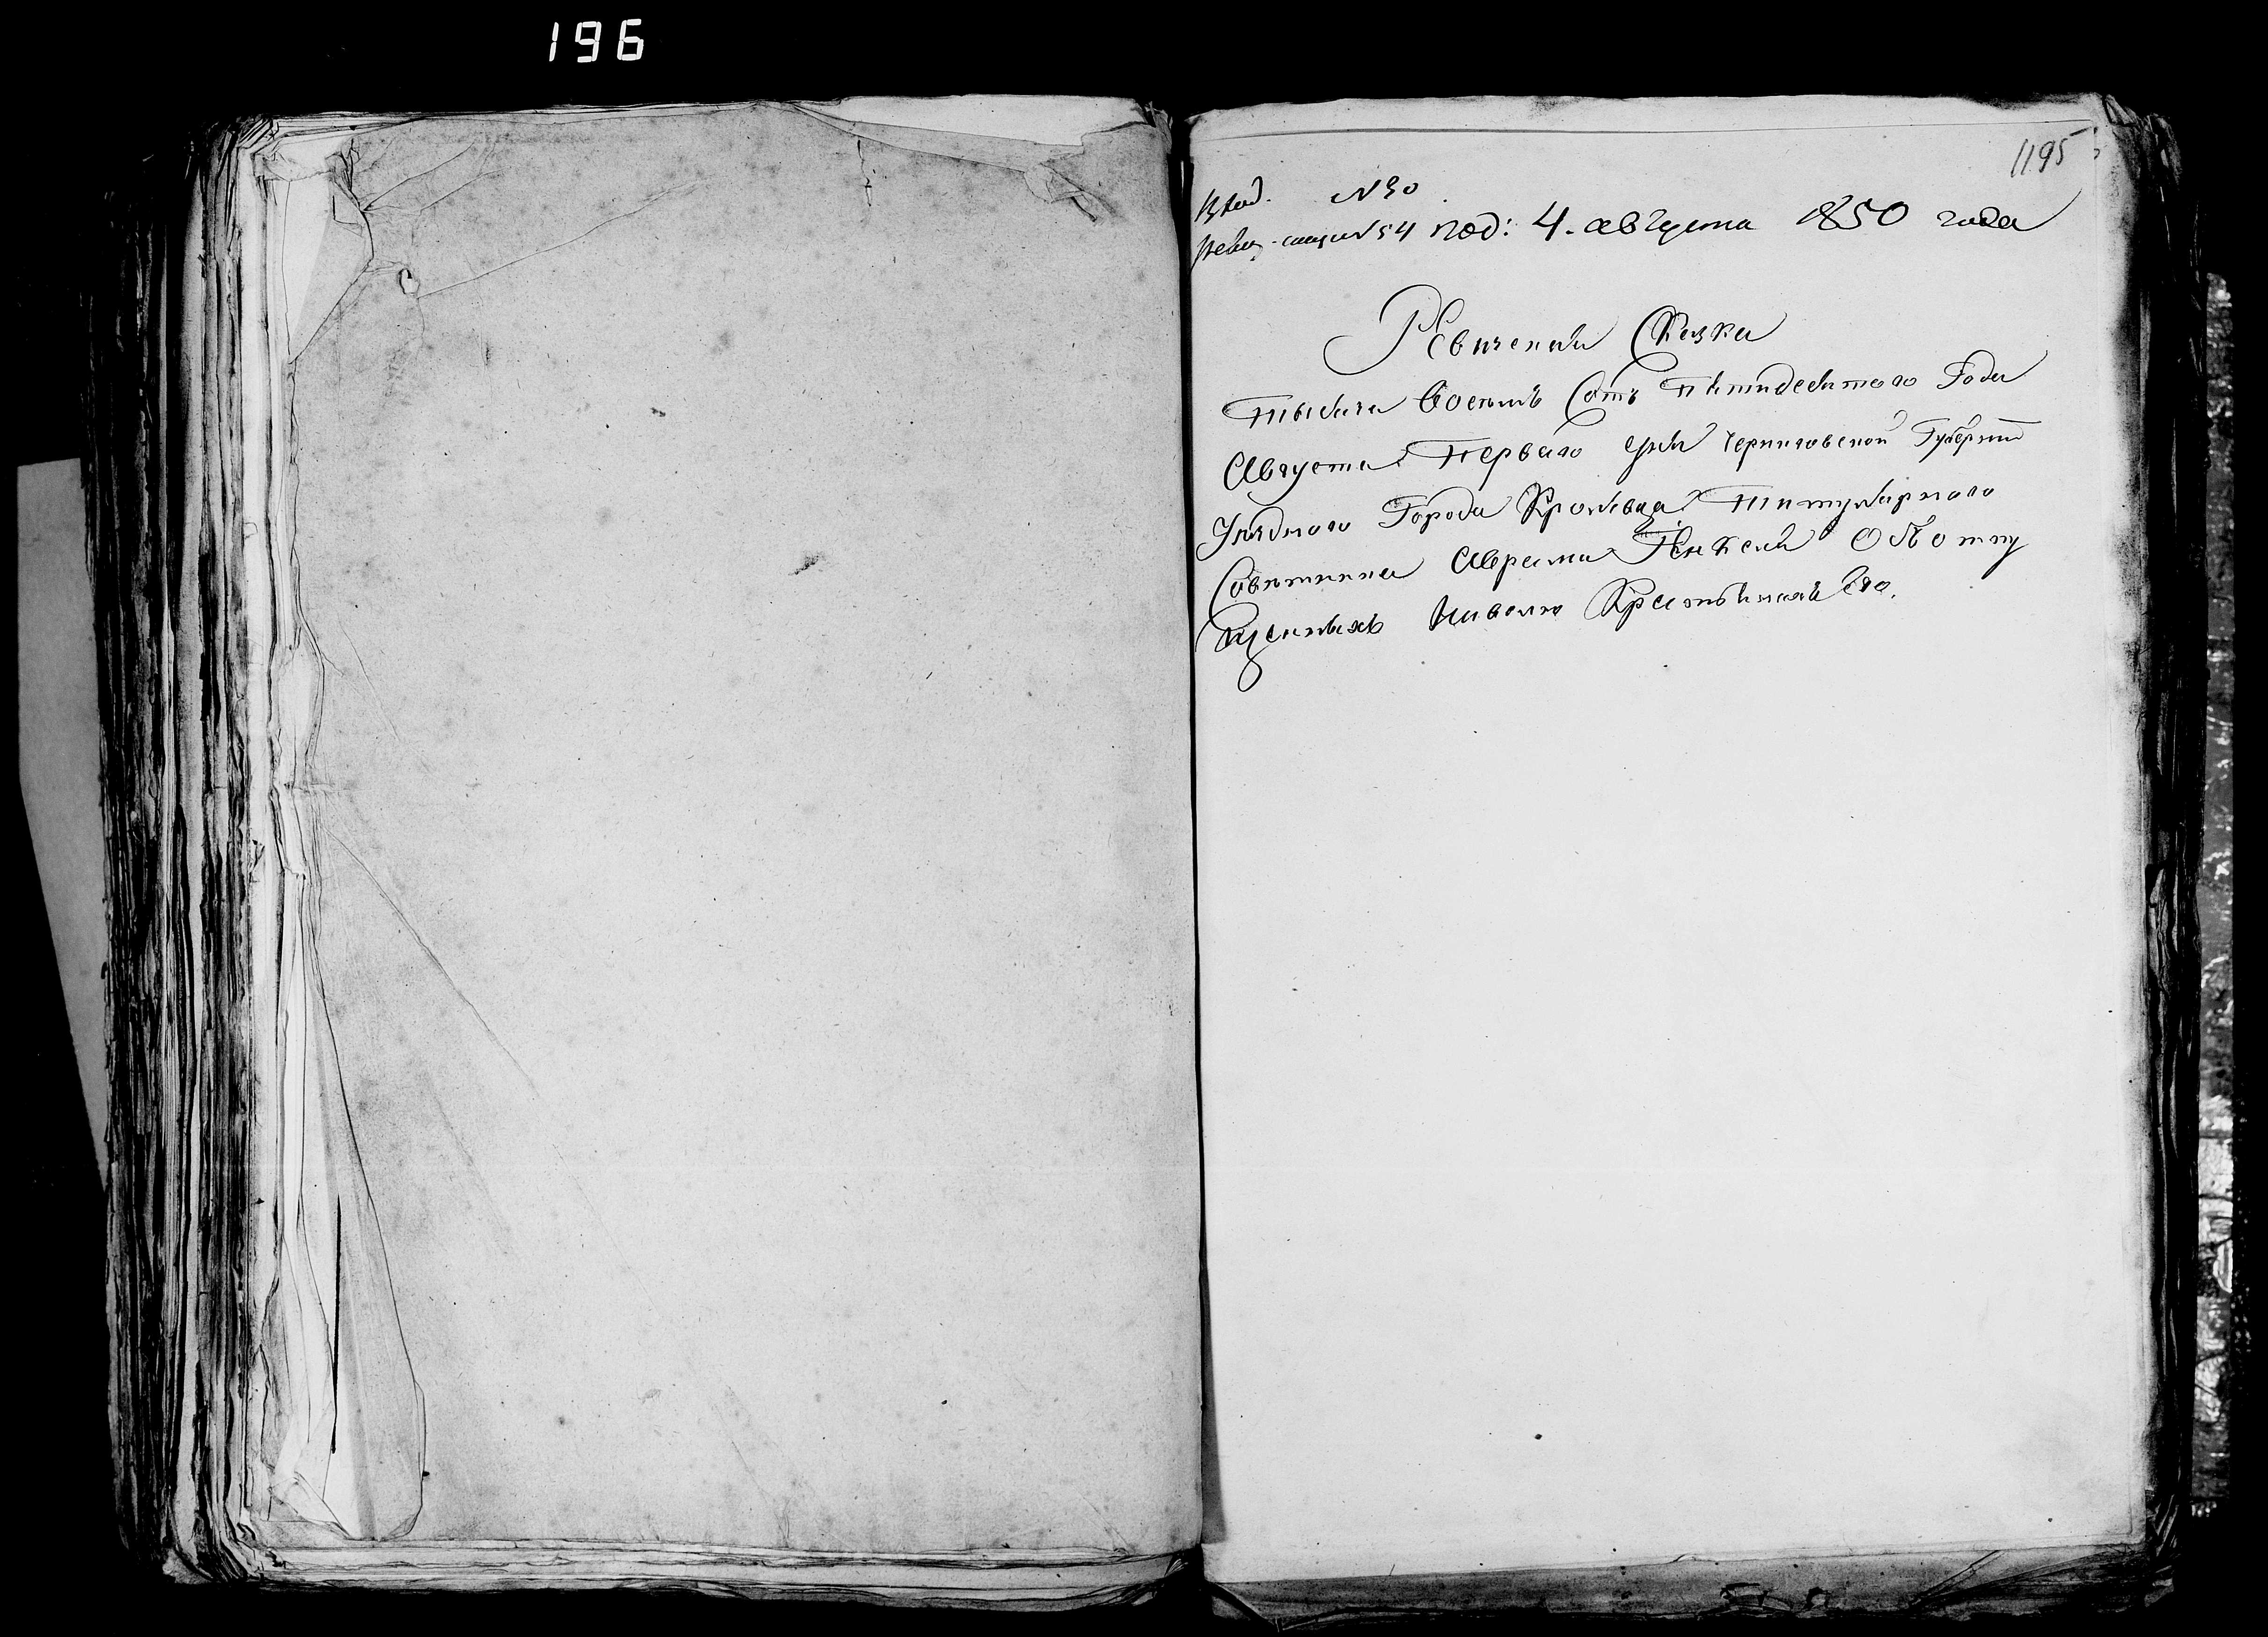 196
1195
Вход. N 30
Ревиз. сказки N 54 под: 4. августа 1850 года
Ревизская Сказка
Тысяча Восемь Сотъ Пятидесятого Года
Августа Первого дня Черниговской Губернии
Уездного Города Кролевца Титулярного
Советника Аврама О
на волю Крестьянахъ Его.